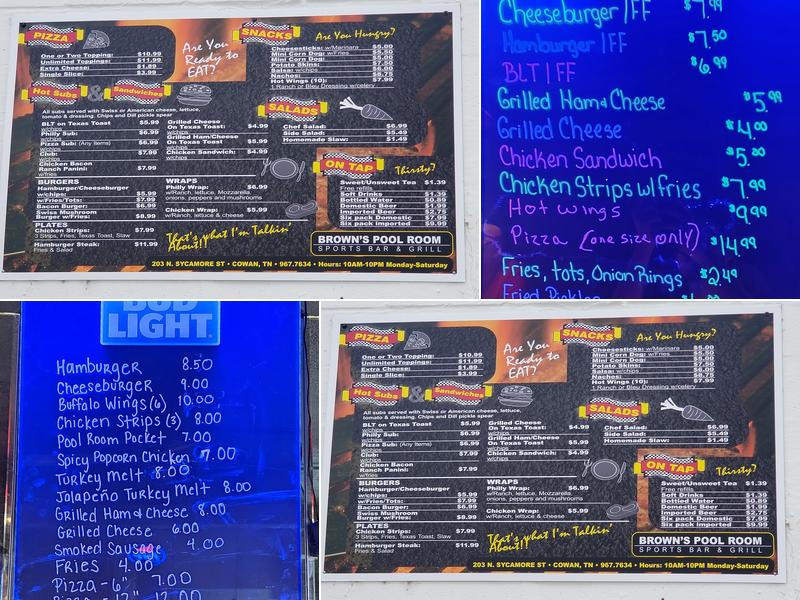 PIZZA
One or Two Topping: $10.99
Unlimited Toppings: $11.99
Extra Cheese: $1.89
Single Slice: $3.99
Are You
Ready to
EAT?
SNACKS
Are You Hungry?
Cheesesticks: w/Marinara $5.00
Mini Corn Dog: $5.50
Mini Corn Dog: w/Fries $7.50
Potato Skins: $7.50
Salsa: w/chips $5.00
Nachos: $6.75
Hot Wings (10): $7.99
1 Ranch or Bleu Dressing w/celery
Hot Subs & Sandwiches
All subs served with Swiss or American cheese, lettuce,
tomato & dressing. Chips and Dill pickle spear
BLT on Texas Toast $5.99
w/chips
Philly Sub: $6.99
w/chips
Pizza Sub: (Any Items) $6.99
w/chips
Club: $7.99
w/chips
Chicken Bacon
Ranch Panini: $7.99
w/fries
Grilled Cheese
On Texas Toast: $4.99
w/chips
Grilled Ham/Cheese
On Texas Toast $5.99
w/chips
Chicken Sandwich: $4.99
w/chips
SALADS
Chef Salad: $6.99
Side Salad: $5.49
Homemade Slaw: $1.49
BURGERS
Hamburger/Cheeseburger
w/chips: $5.99
w/Fries/Tots: $7.99
Bacon Burger: $6.99
Swiss Mushroom
Burger w/Fries: $8.99
WRAPS
Philly Wrap: $6.99
w/Ranch, lettuce, Mozzarella,
onions, peppers and mushrooms
Chicken Wrap: $5.99
w/Ranch, lettuce & cheese
ON TAP
Thirsty?
Sweet/Unsweet Tea $1.39
Free refills
Soft Drinks $1.39
Bottled Water $0.89
Domestic Beer $1.99
Imported Beer $2.75
Six pack Domestic $7.99
Six pack Imported $9.99
PLATES
Chicken Strips: $7.99
3 Strips, Fries, Texas Toast, Slaw
Hamburger Steak: $11.99
Fries & Salad
That's what I'm Talkin'
About!!
BROWN'S POOL ROOM
SPORTS BAR & GRILL
203 N. SYCAMORE ST • COWAN, TN • 967.7634 • Hours: 10AM-10PM Monday-Saturday
Cheeseburger/FF $7.99
Hamburger/FF $7.50
BLT/FF $6.99
Grilled Ham & Cheese $5.99
Grilled Cheese $4.00
Chicken Sandwich $5.20
Chicken Strips w/fries $7.99
Hot wings $9.99
Pizza (one size only) $14.99
Fries, tots, Onion Rings $2.49
Fried Pickles
BUD
LIGHT.
Hamburger 8.50
Cheeseburger 9.00
Buffalo Wings (6) 10.00
Chicken Strips (3) 8.00
Pool Room Pocket 7.00
Spicy Popcorn Chicken 7.00
Turkey Melt 8.00
Jalapeño Turkey Melt 8.00
Grilled Ham & Cheese 8.00
Grilled Cheese 6.00
Smoked Sausage 4.00
Fries 4.00
Pizza - 6" 7.00
Pizza - 12" 12.00
PIZZA
One or Two Topping: $10.99
Unlimited Toppings: $11.99
Extra Cheese: $1.89
Single Slice: $3.99
Are You
Ready to
EAT?
SNACKS
Are You Hungry?
Cheesesticks: w/Marinara $5.00
Mini Corn Dog: $5.50
Mini Corn Dog: w/Fries $7.50
Potato Skins: $7.50
Salsa: w/chips $5.00
Nachos: $6.75
Hot Wings (10): $7.99
1 Ranch or Bleu Dressing w/celery
Hot Subs & Sandwiches
All subs served with Swiss or American cheese, lettuce,
tomato & dressing. Chips and Dill pickle spear
BLT on Texas Toast $5.99
w/chips
Philly Sub: $6.99
w/chips
Pizza Sub: (Any Items) $6.99
w/chips
Club: $7.99
w/chips
Chicken Bacon
Ranch Panini: $7.99
w/fries
Grilled Cheese
On Texas Toast: $4.99
w/chips
Grilled Ham/Cheese
On Texas Toast $5.99
w/chips
Chicken Sandwich: $4.99
w/chips
SALADS
Chef Salad: $6.99
Side Salad: $5.49
Homemade Slaw: $1.49
BURGERS
Hamburger/Cheeseburger
w/chips: $5.99
w/Fries/Tots: $7.99
Bacon Burger: $6.99
Swiss Mushroom
Burger w/Fries: $8.99
WRAPS
Philly Wrap: $6.99
w/Ranch, lettuce, Mozzarella,
onions, peppers and mushrooms
Chicken Wrap: $5.99
w/Ranch, lettuce & cheese
ON TAP
Thirsty?
Sweet/Unsweet Tea $1.39
Free refills
Soft Drinks $1.39
Bottled Water $0.89
Domestic Beer $1.99
Imported Beer $2.75
Six pack Domestic $7.99
Six pack Imported $9.99
PLATES
Chicken Strips: $7.99
3 Strips, Fries, Texas Toast, Slaw
Hamburger Steak: $11.99
Fries & Salad
That's what I'm Talkin'
About!!
BROWN'S POOL ROOM
SPORTS BAR & GRILL
203 N. SYCAMORE ST • COWAN, TN • 967.7634 • Hours: 10AM-10PM Monday-Saturday